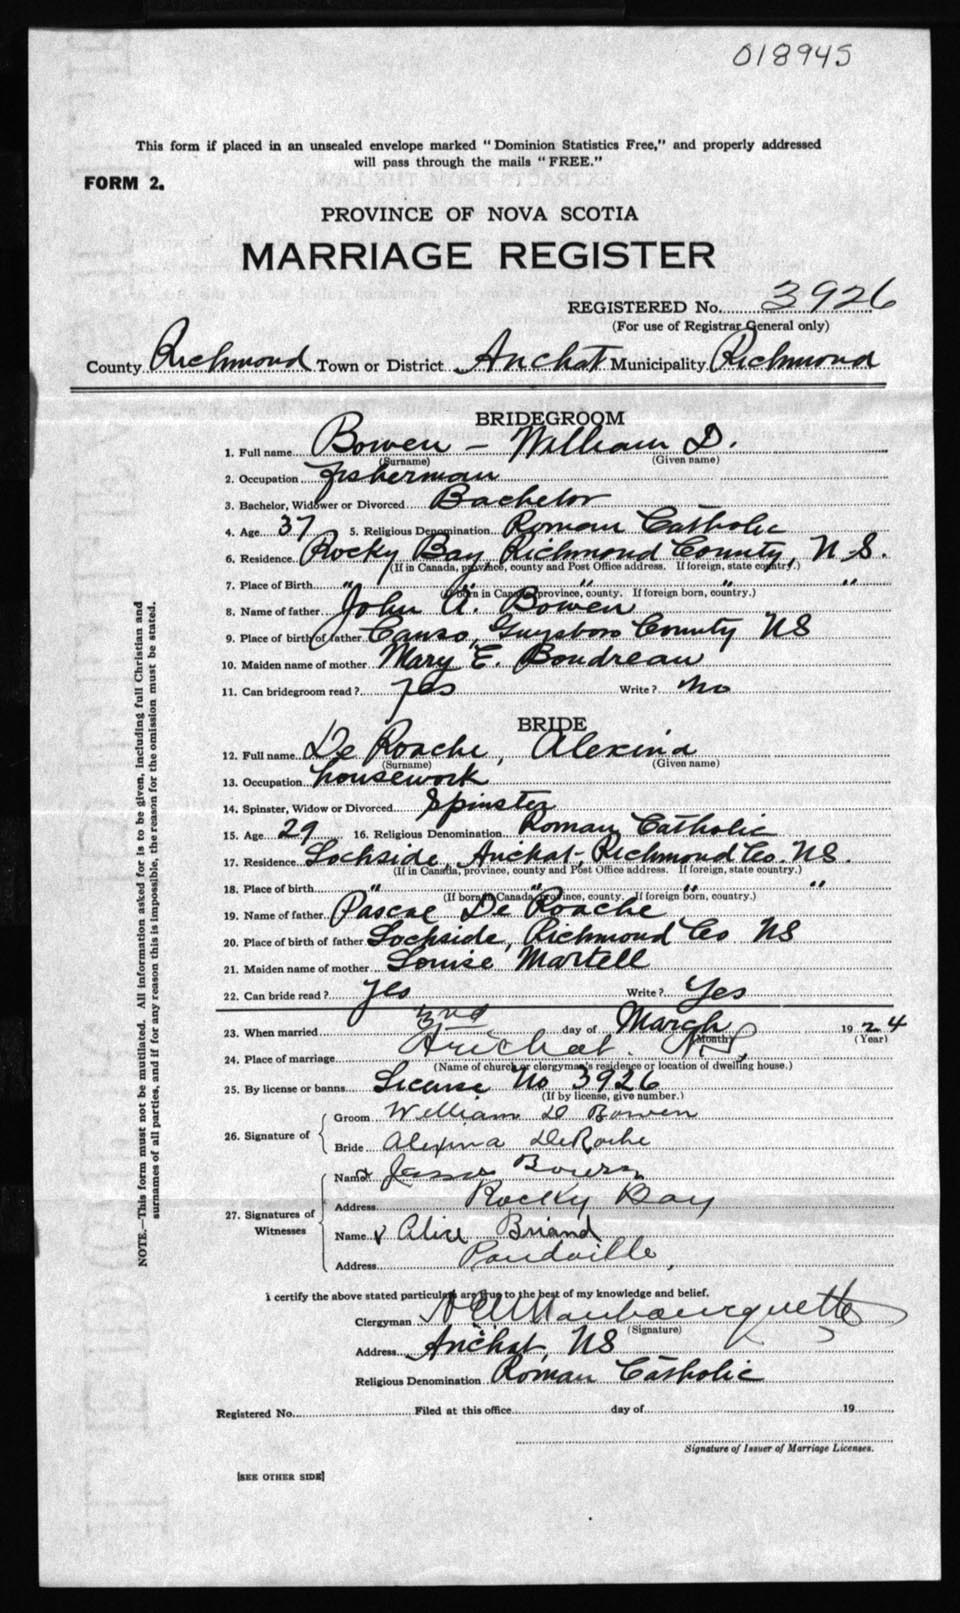 018945
This form if placed in an unsealed envelope marked "Dominion Statistics Free," and properly addressed
will pass through the mails "FREE."
FORM 2.
PROVINCE OF NOVA SCOTIA
MARRIAGE REGISTER
REGISTERED No. 3926
(For use of Registrar General only)
County Richmond Town or District Arichat Municipality Richmond
BRIDEGROOM
1. Full name Bowen - William D.
(Surname) (Given name)
2. Occupation fisherman
3. Bachelor, Widower or Divorced Bachelor
4. Age 37 5. Religious Denomination Roman Catholic
6. Residence Rocky Bay Richmond County, N.S.
(If in Canada, province, county and Post Office address. If foreign, state country.)
7. Place of Birth " " " "
(If born in Canada, province, county. If foreign born, country.)
8. Name of father John A. Bowen
9. Place of birth of father Canso, Guysboro County NS
10. Maiden name of mother Mary E. Boudreau
11. Can bridegroom read? Yes Write? No
BRIDE
12. Full name De Roache, Alexina
(Surname) (Given name)
13. Occupation housework
14. Spinster, Widow or Divorced Spinster
15. Age 29 16. Religious Denomination Roman Catholic
17. Residence Lochside, Arichat, Richmond Co. NS.
(If in Canada, province, county and Post Office address. If foreign, state country.)
18. Place of birth " " "
(If born in Canada, province, county. If foreign born, country.)
19. Name of father Pascal De Roache
20. Place of birth of father Lochside, Richmond Co NS
21. Maiden name of mother Louise Martell
22. Can bride read? Yes Write? Yes
23. When married 3rd day of March 1924
(Month) (Year)
24. Place of marriage Arichat. N.S.
(Name of church or clergyman's residence or location of dwelling house.)
25. By license or banns License No 3926
(If by license, give number.)
Groom William D Bowen
26. Signature of
Bride Alexina DeRoche
Name Bowen
Address Rocky Bay
27. Signatures of Witnesses
Name Alice Briand
Address
I certify the above stated particulars are true to the best of my knowledge and belief.
Clergyman
(Signature)
Address Arichat, NS
Religious Denomination Roman Catholic
Registered No. Filed at this office day of 19
Signature of Issuer of Marriage Licenses.
[SEE OTHER SIDE]
NOTE.—This form must not be mutilated. All information asked for is to be given, including full Christian and
surnames of all parties, and if for any reason this is impossible, the reason for the omission must be stated.